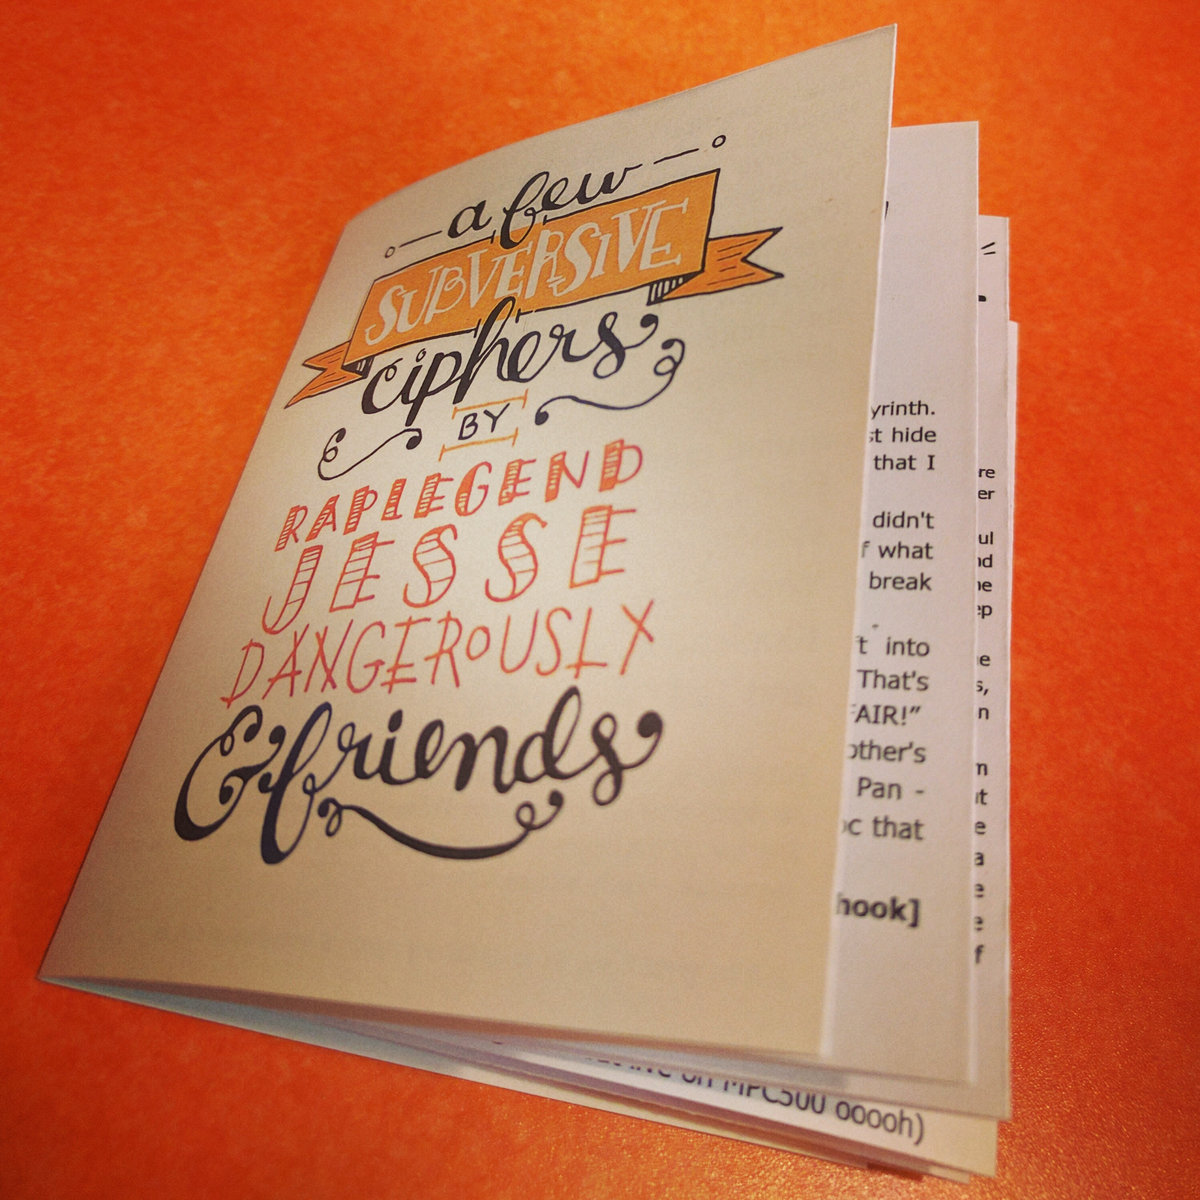 a few
SUBVERSIVE
ciphers
BY
RAPLEGEND
JESSE
DANGEROUSLY
& friends
yrinth.
st hide
that I
didn't
f what
break
t into
That's
FAIR!”
other's
Pan -
oc that
hook]
re
er
ul
nd
ne
ep
e
s,
n
m
t
e
a
e
e
f
on MPC500 ooooh)